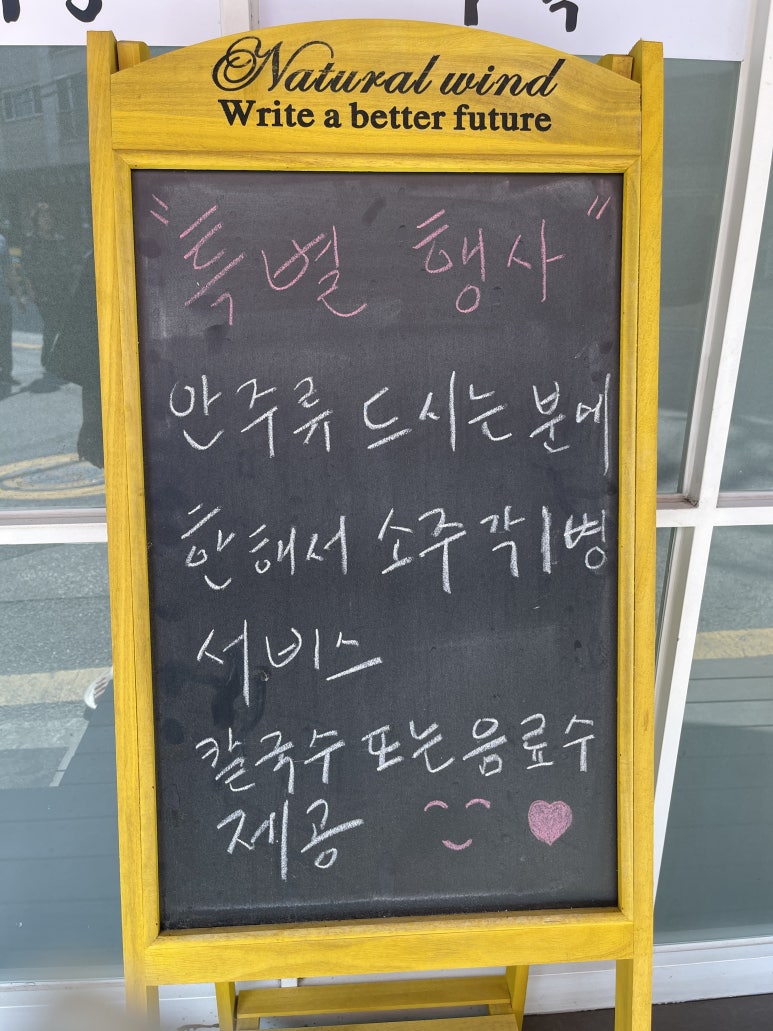 Natural wind
Write a better future
"특별 행사"
안주류 드시는 분에
한해서 소주 각 1병
서비스
칼국수 또는 음료수
제공